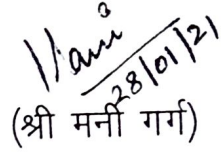 28/01/21
(श्री मनी गर्ग)